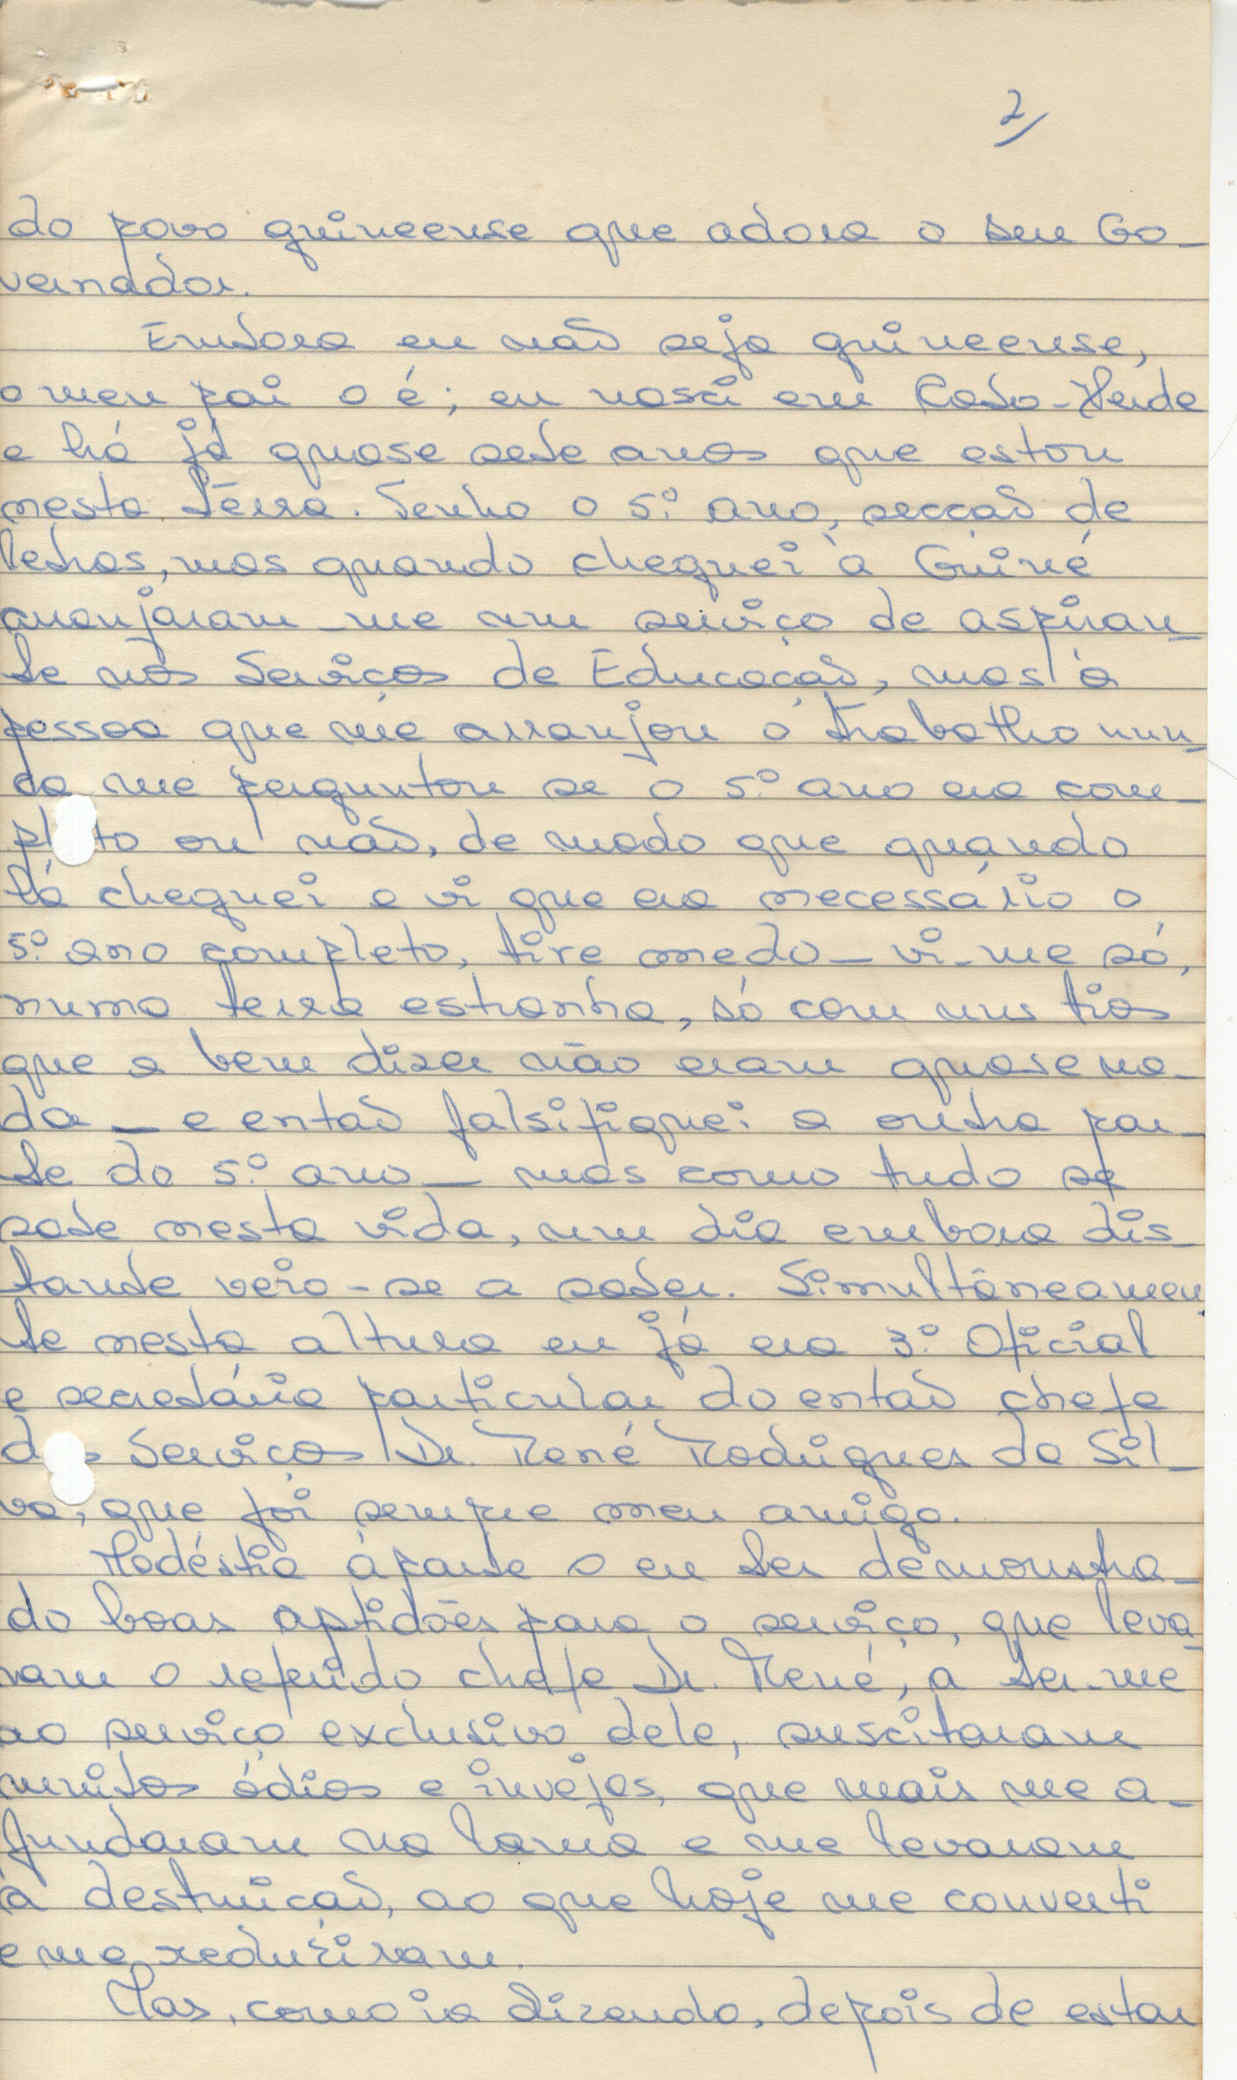 2/
do povo guineense que adora o seu Go-
vernador.
Embora eu não seja guineense,
o meu pai o é; eu nasci em Cabo-Verde
e há já quase sete anos que estou
nesta terra. Tenho o 5.º ano, secção de
letras, mas quando cheguei à Guiné
arranjaram-me um serviço de aspiran-
te nos Serviços de Educação, mas a
pessoa que me arranjou o trabalho nun-
ca me perguntou se o 5.º ano era com-
pl to ou não, de modo que quando
lá cheguei e vi que era necessário o
5.º ano completo, tive medo - vi-me só,
numa terra estranha, só com uns tios
que a bem dizer não eram quase na-
da - e então falsifiquei a outra par-
te do 5.º ano - mas como tudo se
sabe nesta vida, um dia embora dis-
tante veio-se a saber. Simultâneamen
te nesta altura eu já era 3.º Oficial
e secretária particular do então chefe
d s Serviços Dr. René Rodrigues da Sil-
va, que foi sempre meu amigo.
Modéstia àparte o eu ter demonstra-
do boas aptidões para o serviço, que leva-
ram o referido chefe Dr. René, a ter-me
ao serviço exclusivo dele, suscitaram
muitos ódios e invejas, que mais me a-
fundaram na lama e me levaram
à destruição, ao que hoje me converti
e me reduziram.
Mas, como ia dizendo, depois de estar